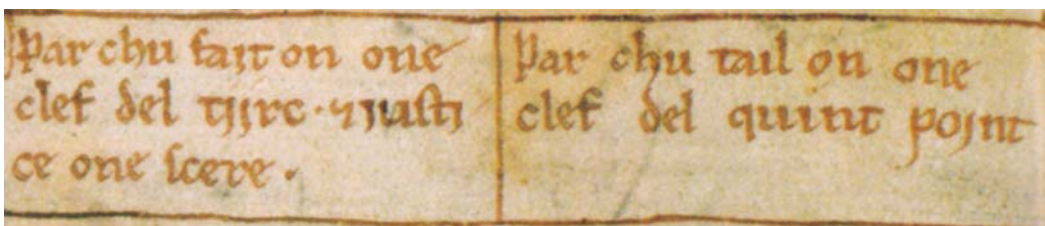 Par chu fait on one
clef del tiirc · ⁊ iusti
ce one scere .
Par chu tail on one
clef del quint point